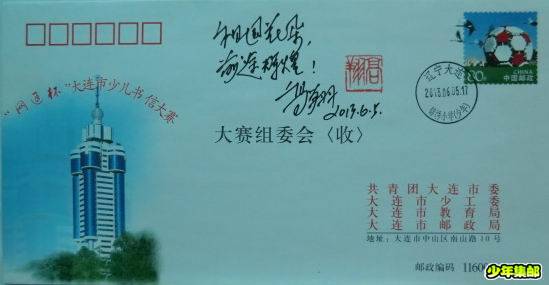 祖国花朵,
前途辉煌!
2013.6.5.
80分
CHINA
中国邮政
辽宁大连
2013.06.05.17
"网通杯"大连市少儿书信大赛
大赛组委会〈收〉
共青团大连市委
大连市少工委
大连市教育局
大连市邮政局
地址:大连市中山区南山路10号
邮政编码 11600
少年集邮